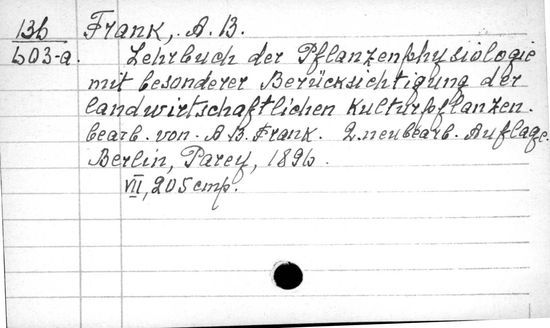 13b Frank, A. B.
b03-a. Lehrbuch der Pflanzenphysiologie
mit besonderer Berücksichtigung der
landwirtschaftlichen Kulturpflanzen.
bearb. von. A. B. Frank. 2. neubearb. Auflage.
Berlin, Parey, 1896.
VII, 205 стр.